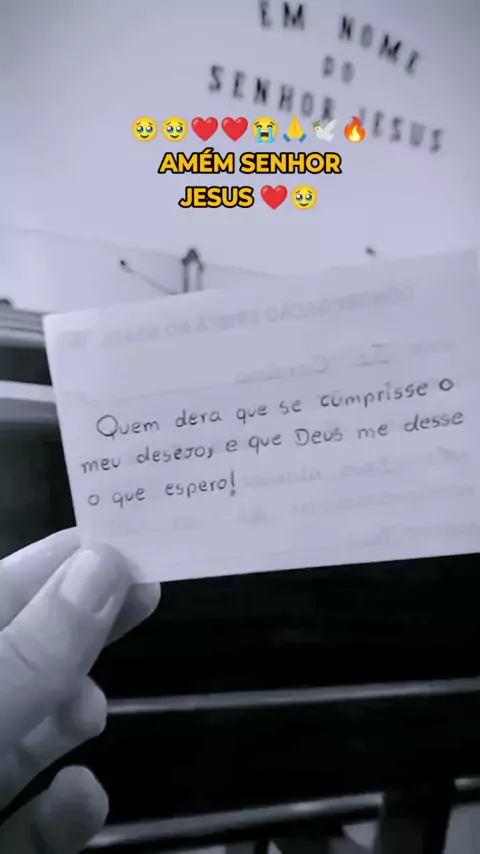 EM NOME
DO
SENHOR JESUS
🥹🥹❤️❤️😭🙏🕊️🔥
AMÉM SENHOR
JESUS ❤️🥹
CONGREGAÇÃO CRISTÃ NO BRASIL
Quem dera que se cumprisse o
meu desejo, e que Deus me desse
o que espero!